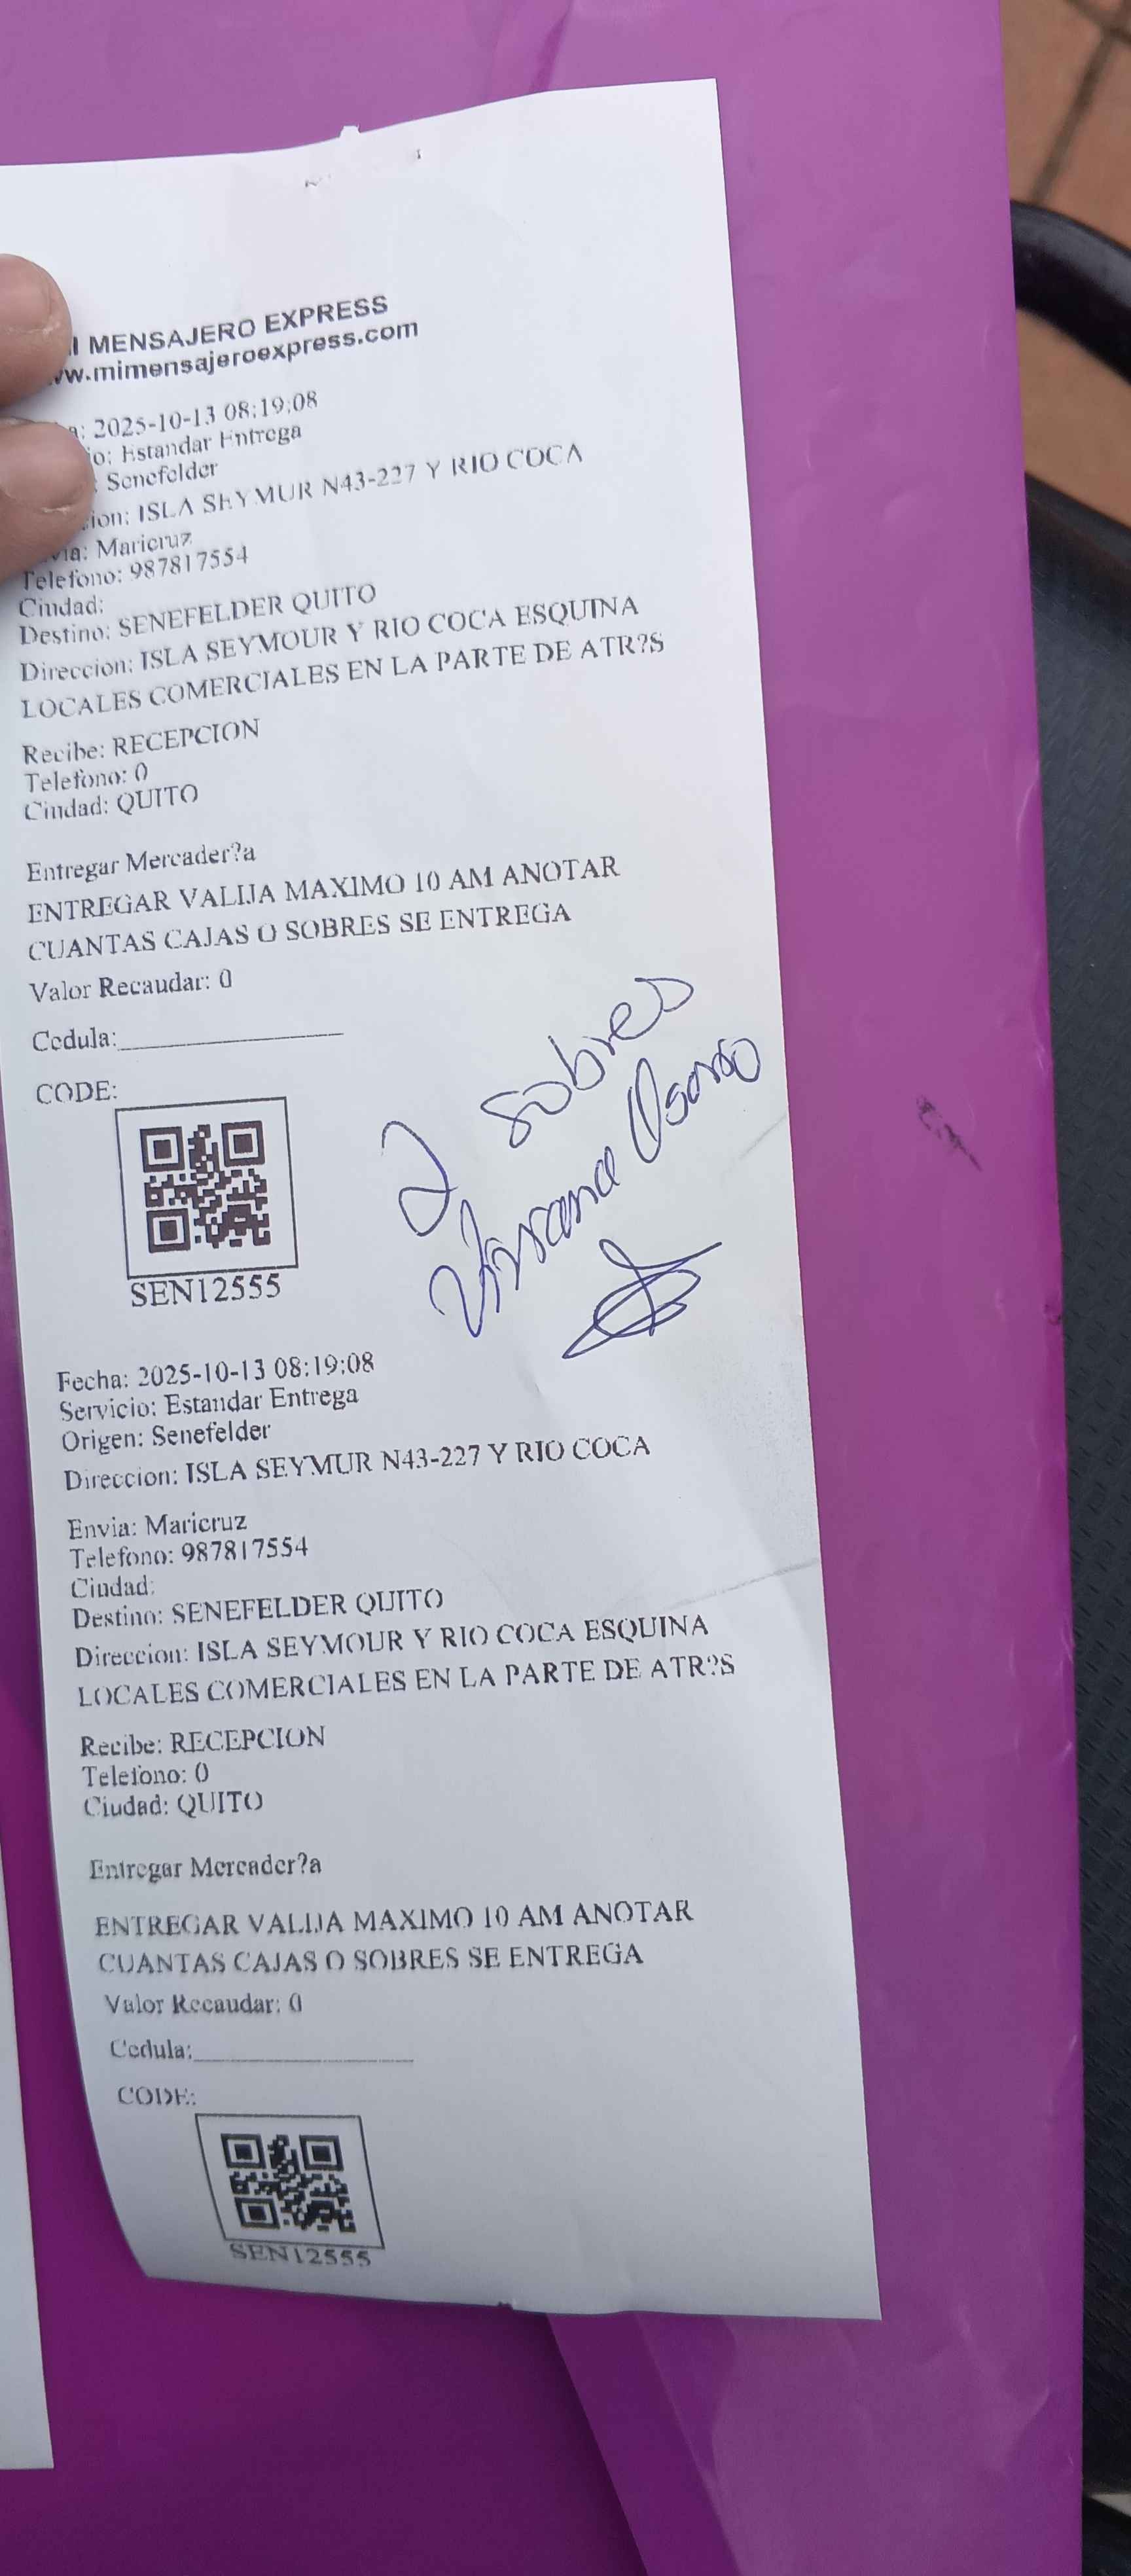 I MENSAJERO EXPRESS
w.mimensajeroexpress.com
a: 2025-10-13 08:19:08
io: Estandar Entrega
: Senefelder
cion: ISLA SEYMUR N43-227 Y RIO COCA
via: Maricruz
Telefono: 987817554
Ciudad:
Destino: SENEFELDER QUITO
Direccion: ISLA SEYMOUR Y RIO COCA ESQUINA
LOCALES COMERCIALES EN LA PARTE DE ATR?S
Recibe: RECEPCION
Telefono: 0
Ciudad: QUITO
Entregar Mercader?a
ENTREGAR VALIJA MAXIMO 10 AM ANOTAR
CUANTAS CAJAS O SOBRES SE ENTREGA
Valor Recaudar: 0
Cedula:
CODE:
2 sobres
Viviana Osorio
SEN12555
Fecha: 2025-10-13 08:19:08
Servicio: Estandar Entrega
Origen: Senefelder
Direccion: ISLA SEYMUR N43-227 Y RIO COCA
Envia: Maricruz
Telefono: 987817554
Ciudad:
Destino: SENEFELDER QUITO
Direccion: ISLA SEYMOUR Y RIO COCA ESQUINA
LOCALES COMERCIALES EN LA PARTE DE ATR?S
Recibe: RECEPCION
Telefono: 0
Ciudad: QUITO
Entregar Mercader?a
ENTREGAR VALIJA MAXIMO 10 AM ANOTAR
CUANTAS CAJAS O SOBRES SE ENTREGA
Valor Recaudar: 0
Cedula:
CODE:
SEN12555